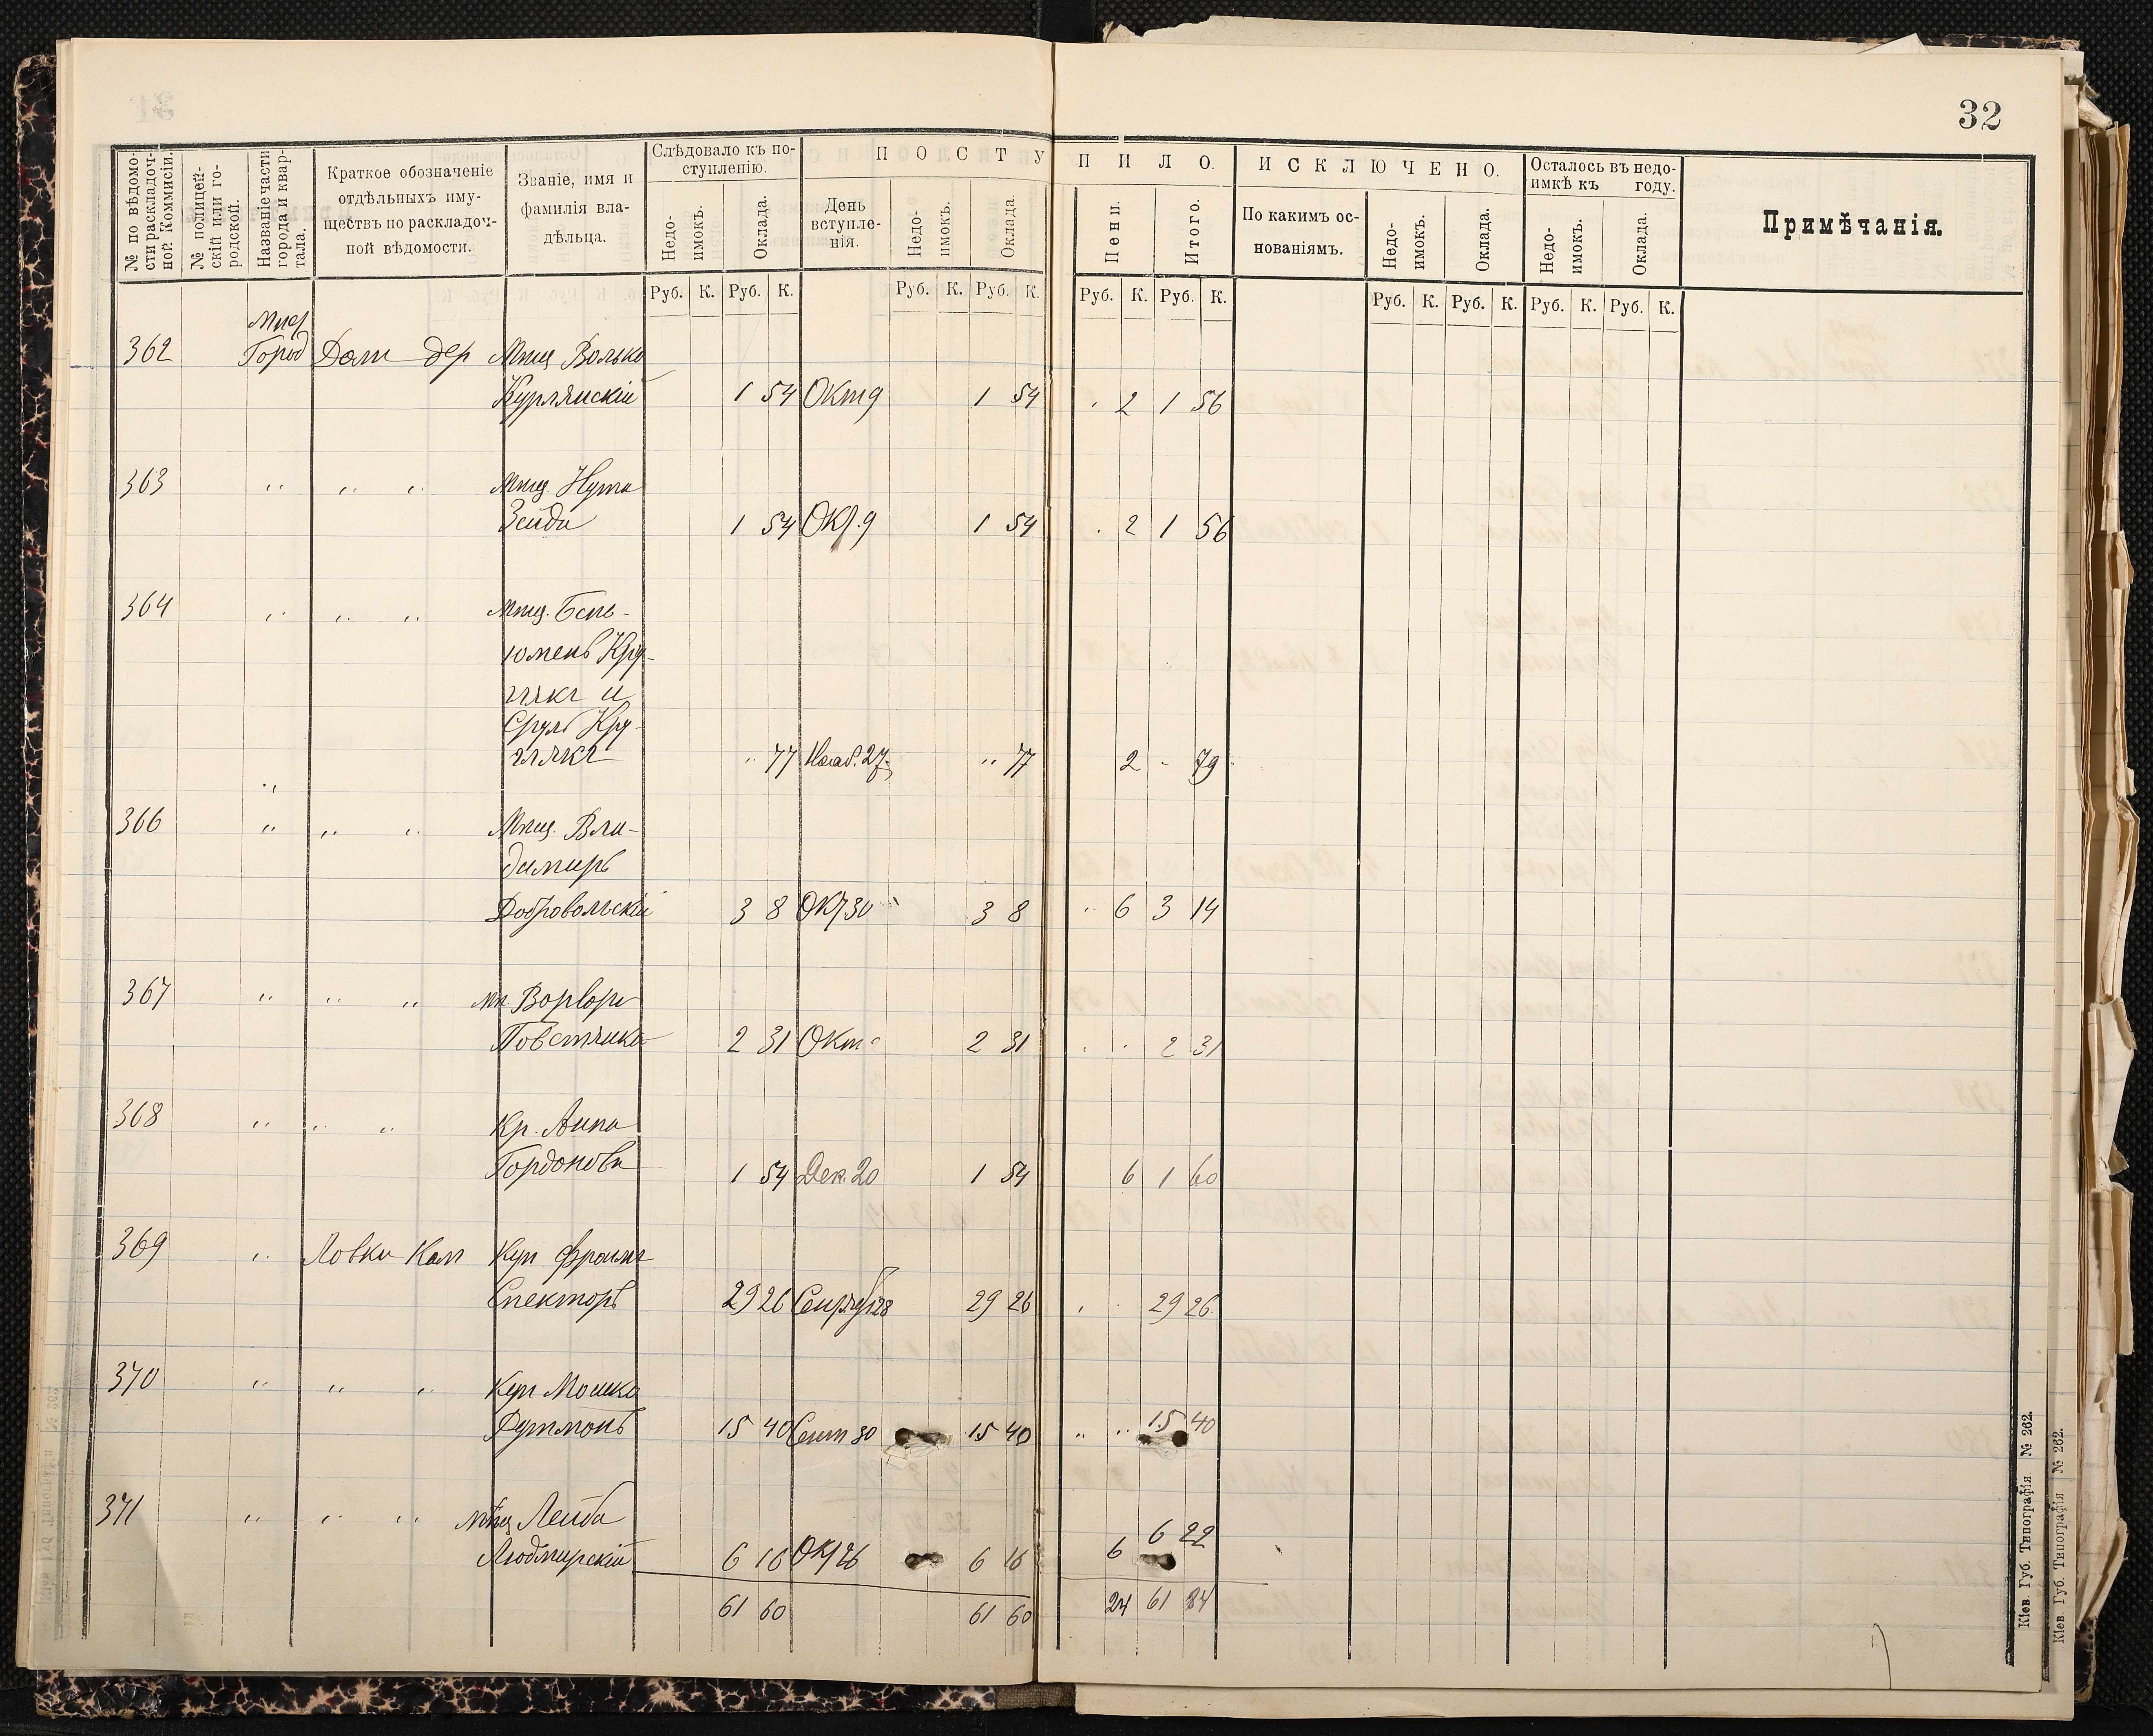 32
№ по вѣдомости раскладочной Коммисіи.
№ полицейскій или городской.
Названіе части города и квартала.
Краткое обозначеніе отдѣльныхъ имуществъ по раскладочной вѣдомости.
Званіе, имя и фамилія владѣльца.
Слѣдовало къ поступленію.
Недоимокъ.
Оклада.
ПОСТУПИЛО.
День вступленія.
Недоимокъ.
Оклада.
Пени.
Итого.
ИСКЛЮЧЕНО.
По какимъ основаніямъ.
Недоимокъ.
Оклада.
Осталось въ недоимкѣ къ году.
Недоимокъ.
Оклада.
Примѣчанія.
Руб. К. Руб. К. Руб. К. Руб. К. Руб. К. Руб. К. Руб. К. Руб. К. Руб. К. Руб. К.
362 Город Дом дер Мѣщ Волько
Курлянскій 1 54 Окт 9 1 54 2 1 56
363 " " " Мѣщ. Нута
Зейда 1 54 Окт. 9 1 54 2 1 56
364 " " " Мѣщ. Бень-
юмень Кру-
глякъ и
Сруль Кру-
глякъ " 77 Нояб. 27. " 77 2 - 79
366 " " " Мѣщ. Вла-
димиръ
Добровольскій 3 8 Окт 30 3 8 " 6 3 14
367 " " " Варвара
2 31 Окт 2 31 2 31
368 " " " Кр. Анна
Гордонова 1 54 Дек. 20 1 54 6 1 60
369 " Лавки Кам Куп Фроимъ
Спекторъ 29 26 Сентяб 28 29 26 29 26
370 " " " Куп Мошко
15 40 Сент 30 15 40 " " 15 40
371 " " " Мѣщ Лейба
Людмирскій 6 16 Окт 26 6 16 6 6 22
61 60 61 60 24 61 84
Кіев. Губ. Типографія № 262.
Кіев. Губ. Типографія № 262.